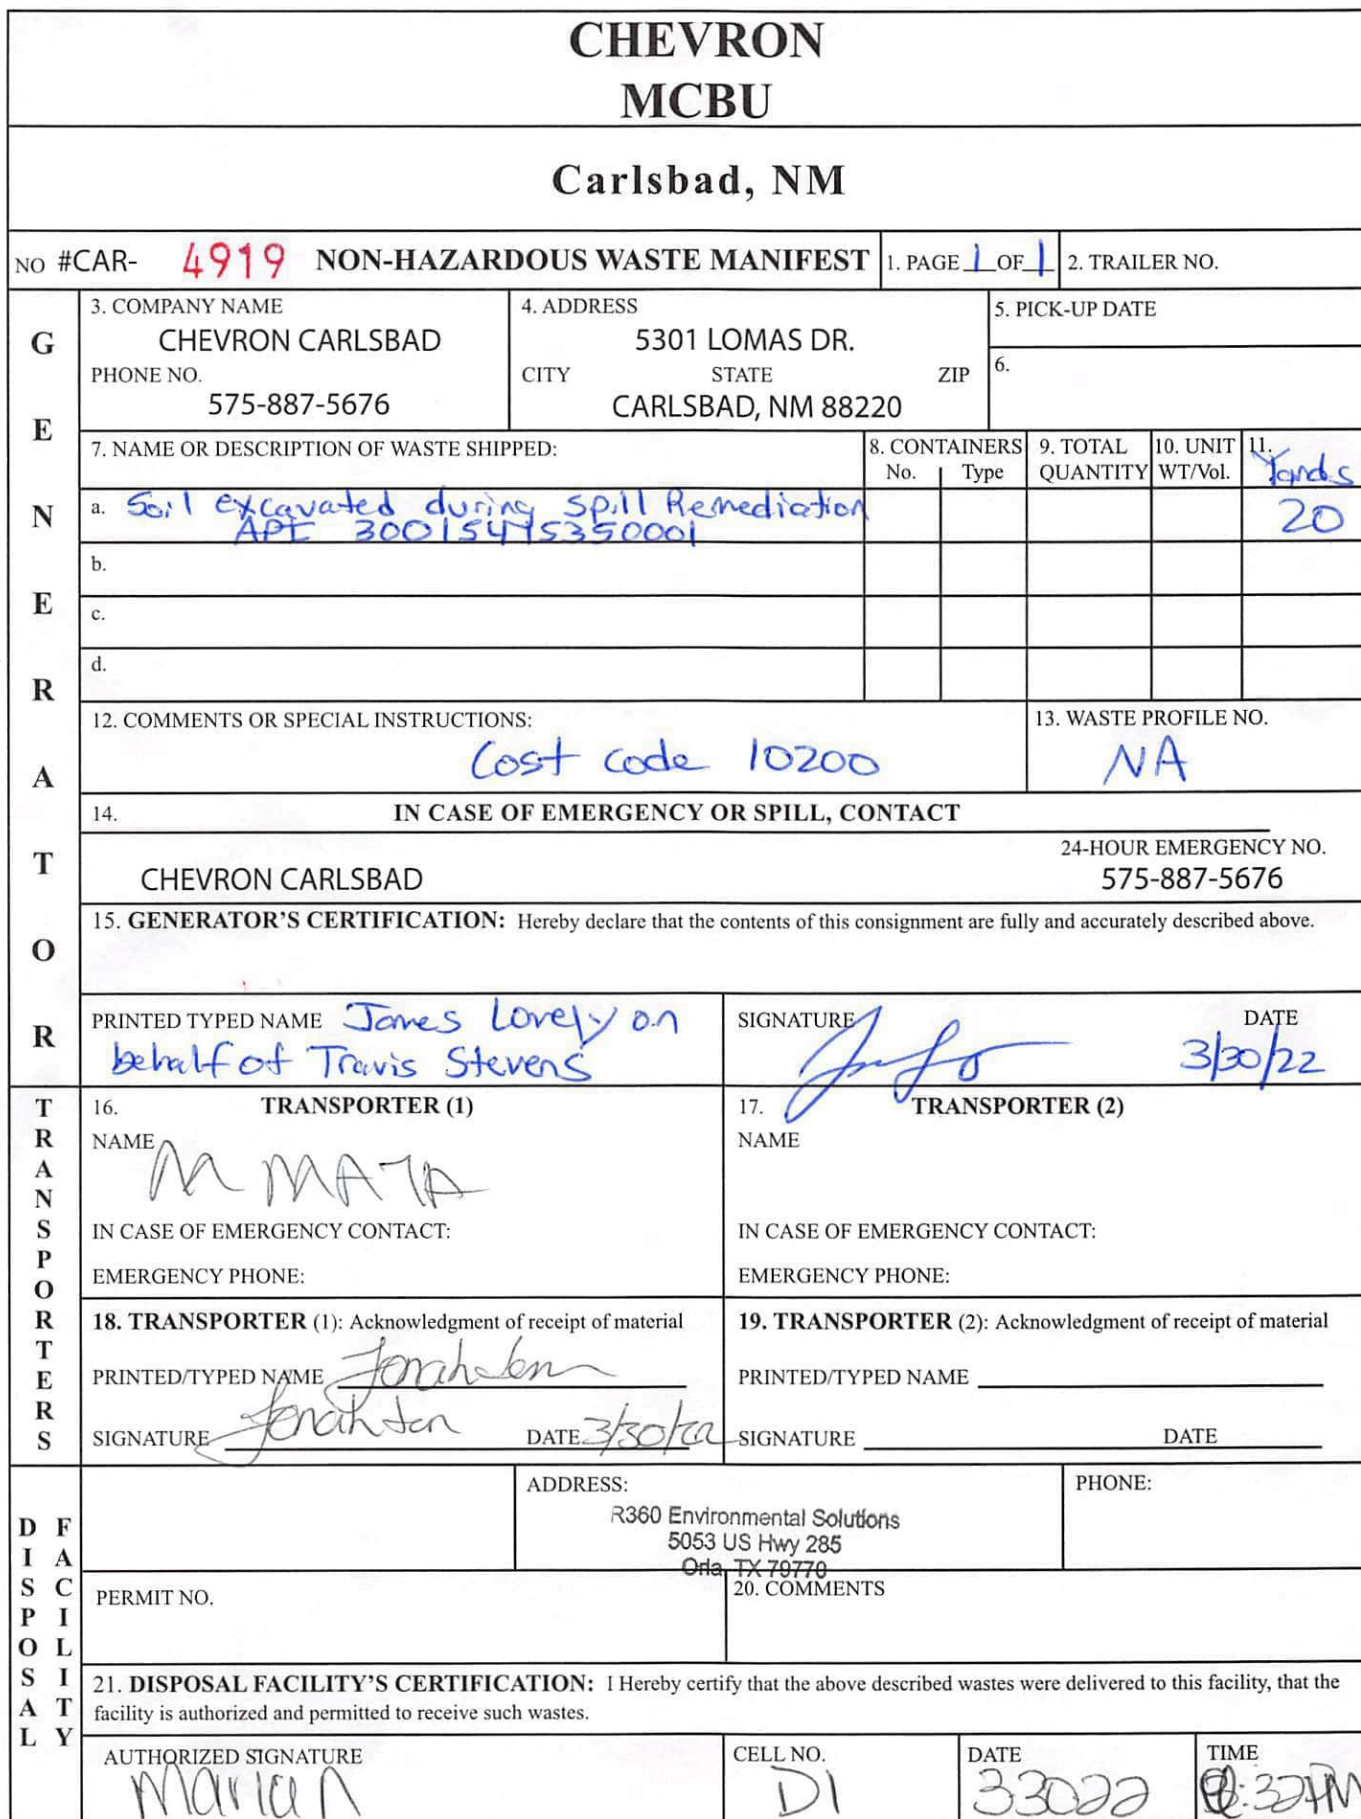 CHEVRON
MCBU
Carlsbad, NM
NO #CAR- 4919 NON-HAZARDOUS WASTE MANIFEST 1. PAGE 1 OF 1 2. TRAILER NO.
GENERATOR
3. COMPANY NAME
CHEVRON CARLSBAD
PHONE NO.
575-887-5676
4. ADDRESS
5301 LOMAS DR.
CITY STATE ZIP
CARLSBAD, NM 88220
5. PICK-UP DATE
6.
7. NAME OR DESCRIPTION OF WASTE SHIPPED:
8. CONTAINERS
No. Type
9. TOTAL
QUANTITY
10. UNIT
WT/Vol.
11.
Yards
a. Soil excavated during Spill Remediation
API 30015475350001
20
b.
c.
d.
12. COMMENTS OR SPECIAL INSTRUCTIONS:
Cost code 10200
13. WASTE PROFILE NO.
NA
14. IN CASE OF EMERGENCY OR SPILL, CONTACT
CHEVRON CARLSBAD
24-HOUR EMERGENCY NO.
575-887-5676
15. GENERATOR'S CERTIFICATION: Hereby declare that the contents of this consignment are fully and accurately described above.
PRINTED TYPED NAME James Lovely on
behalf of Travis Stevens
SIGNATURE
DATE
3/30/22
TRANSPORTERS
16. TRANSPORTER (1)
NAME
M MATA
IN CASE OF EMERGENCY CONTACT:
EMERGENCY PHONE:
17. TRANSPORTER (2)
NAME
IN CASE OF EMERGENCY CONTACT:
EMERGENCY PHONE:
18. TRANSPORTER (1): Acknowledgment of receipt of material
PRINTED/TYPED NAME
SIGNATURE DATE 3/30/22
19. TRANSPORTER (2): Acknowledgment of receipt of material
PRINTED/TYPED NAME
SIGNATURE DATE
DISPOSAL FACILITY
ADDRESS:
R360 Environmental Solutions
5053 US Hwy 285
Orla, TX 79770
PHONE:
PERMIT NO.
20. COMMENTS
21. DISPOSAL FACILITY'S CERTIFICATION: I Hereby certify that the above described wastes were delivered to this facility, that the
facility is authorized and permitted to receive such wastes.
AUTHORIZED SIGNATURE
Maria N
CELL NO.
D1
DATE
33022
TIME